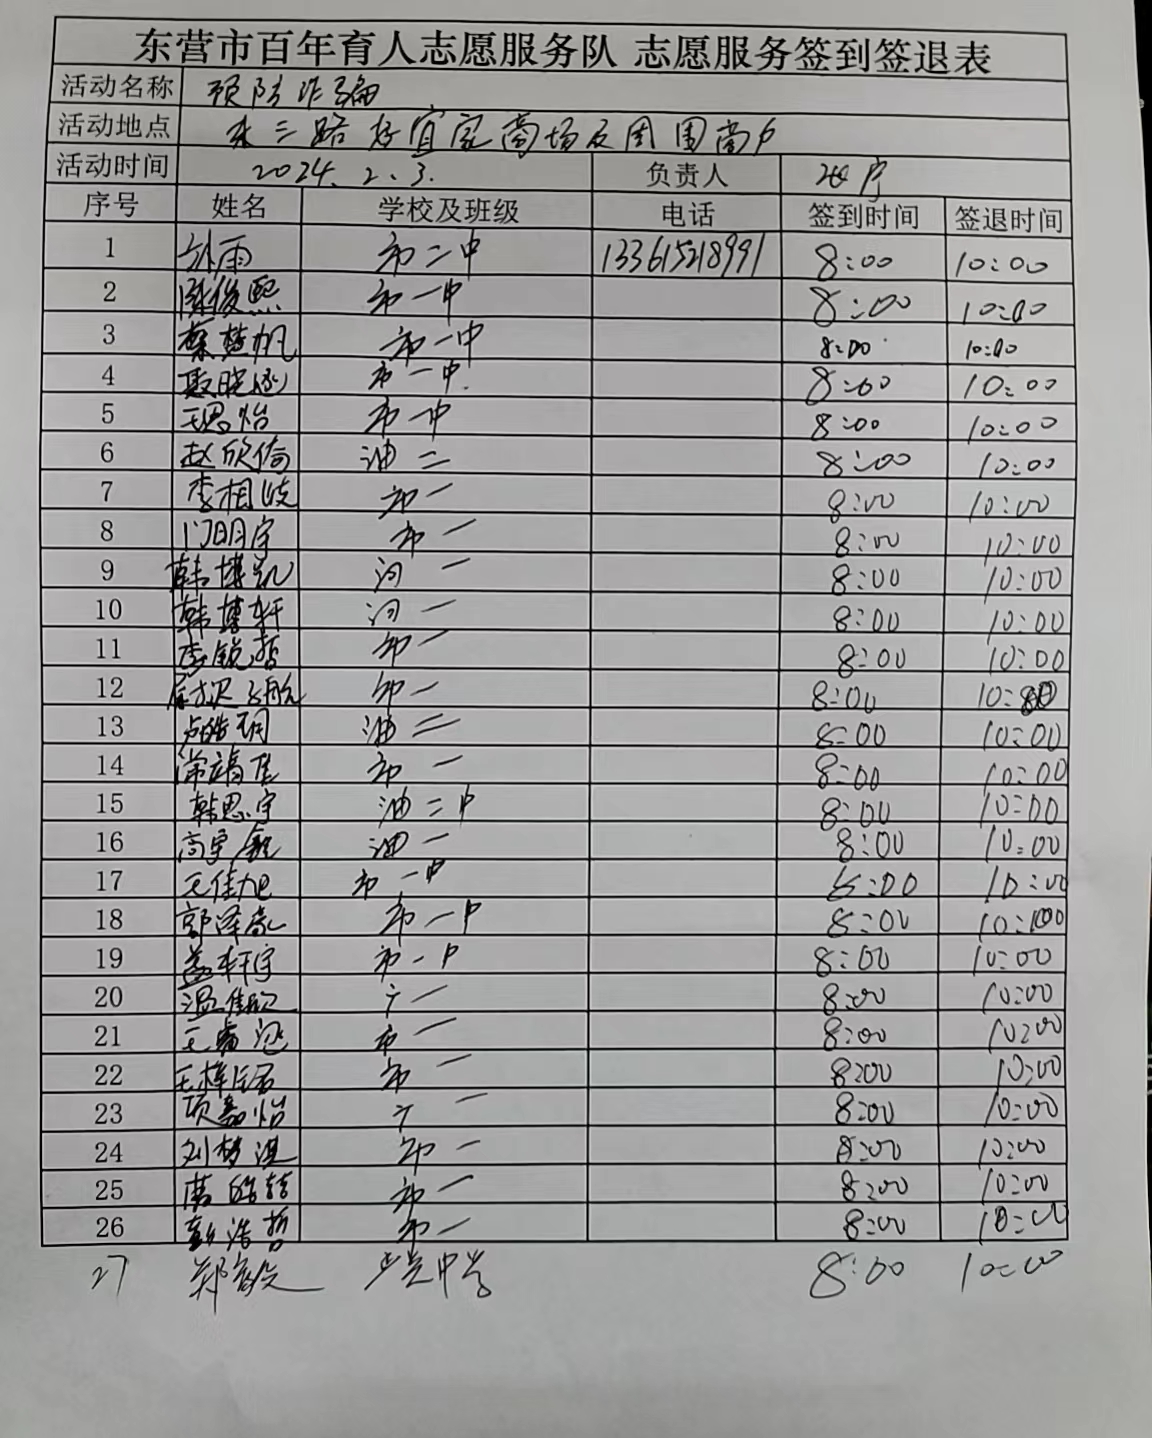 东营市百年育人志愿服务队 志愿服务签到签退表
活动名称 预防诈骗
活动地点 东三路好宜家商场及周围商户
活动时间 2024.2.3. 负责人
序号 姓名 学校及班级 电话 签到时间 签退时间
1 市二中 133615218991 8:00 10:00
2 陈俊熙 市一中 8:00 10:00
3 蔡楚帆 市一中 8:00 10:00
4 市一中. 8:00 10:00
5 王思怡 市一中 8:00 10:00
6 赵欣倚 油二 8:00 10:00
7 李相岐 市一 8:00 10:00
8 门明宇 市一 8:00 10:00
9 韩博凯 河一 8:00 10:00
10 韩博轩 河一 8:00 10:00
11 李锐哲 市一 8:00 10:00
12 市一 8:00 10:00
13 油二 8:00 10:00
14 常靖佳 市一 8:00 10:00
15 韩思宇 油二中 8:00 10:00
16 油一 8:00 10:00
17 王佳旭 市一中 8:00 10:00
18 市一中 8:00 10:00
19 盖轩宇 市一中 8:00 10:00
20 温佳欣 广一 8:00 10:00
21 市一 8:00 10:00
22 市一 8:00 10:00
23 项嘉怡 广一 8:00 10:00
24 刘梦淇 市一 8:00 10:00
25 市一 8:00 10:00
26 彭浩哲 市一 8:00 10:00
27 中学 8:00 10:00